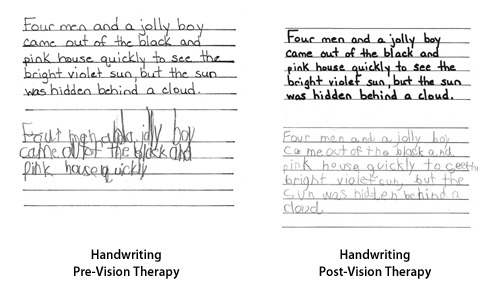 Four men and a jolly boy
came out of the black and
pink house quickly to see the
bright violet sun, but the sun
was hidden behind a cloud.
Four men and a jolly boy
came out of the black and
pink house quickly
Handwriting
Pre-Vision Therapy
Four men and a jolly boy
came out of the black and
pink house quickly to see the
bright violet sun, but the sun
was hidden behind a cloud.
Four men and a jolly boy
Came out of the black and
pink house quickly to see the
bright violet sun, but the
sun was hidden behind a
cloud.
Handwriting
Post-Vision Therapy